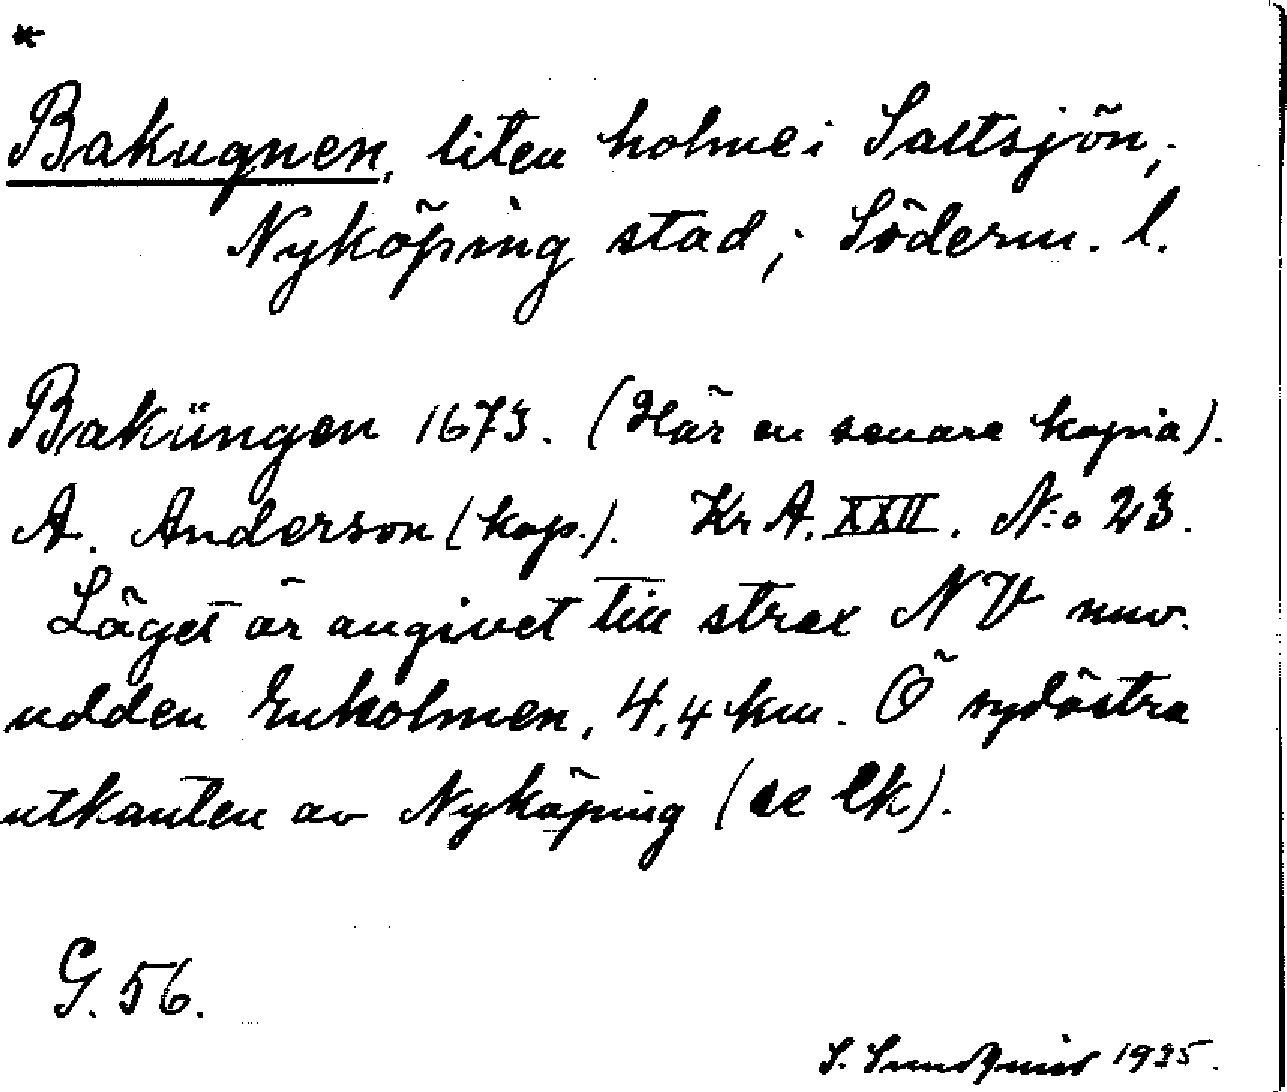 *
Bakugnen, liten holme i Saltsjön,
Nyköping stad; Söderm. l.
Baküngen 1673. (Här en senare kopia).
A. Anderson (kop.). Kr A. XXII. N:o 23.
Läget är angivet till strax NV nuv.
udden Enholmen, 4,4 km. Ö sydöstra
utkanten av Nyköping (se lk).
G. 56.
S. Sundquist 1935.